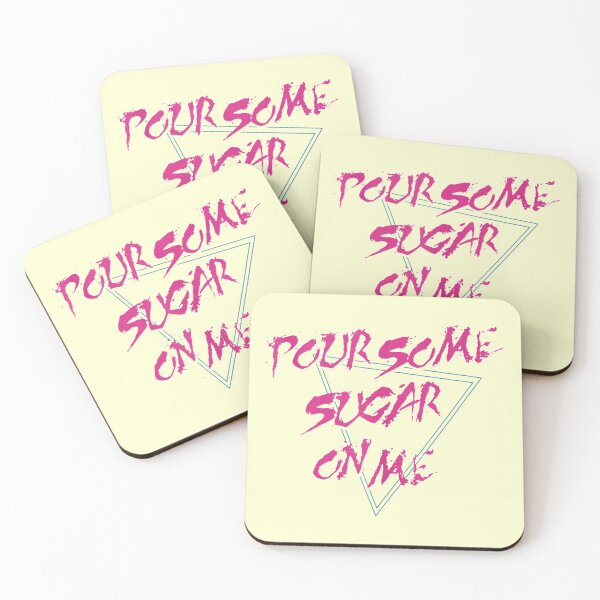 POUR SOME
SUGAR
POUR SOME
SUGAR
ON ME
POUR SOME
SUGAR
ON ME
POUR SOME
SUGAR
ON ME